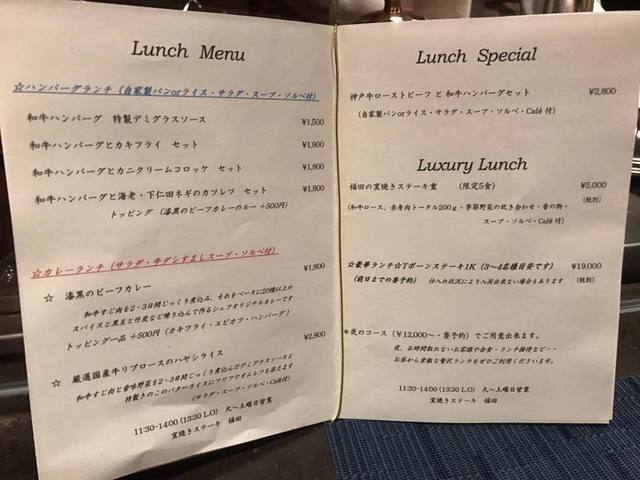 Lunch Menu
☆ハンバーグランチ（自家製パンorライス・サラダ・スープ・ソルベ付）
和牛ハンバーグ　特製デミグラスソース ¥1,500
和牛ハンバーグとカキフライ　セット ¥1,800
和牛ハンバーグとカニクリームコロッケ　セット ¥1,800
和牛ハンバーグと海老・下仁田ネギのカツレツ　セット ¥1,800
トッピング（漆黒のビーフカレーのルー ＋500円）
☆カレーランチ（サラダ・牛ダシすまし スープ・ソルベ付）
☆　漆黒のビーフカレー ¥1,800
和牛すじ肉を2・3日間じっくり煮込み、それをベースに20種以上の
スパイスと黒豆と竹炭など練り込んで作るシェフオリジナルカレーです
トッピング一品 ＋500円（カキフライ・エビカツ・ハンバーグ）
☆　厳選国産牛リブロースのハヤシライス ¥2,800
和牛すじ肉と香味野菜を2・3日間じっくり煮込んだデミグラスソースと
特製きのこのバターライスにフワフワオムレツを添えます
（サラダ・スープ・ソルベ・Café付）
11:30-14:00 (13:30 L.O)　火～土曜日営業
窯焼きステーキ　福田
Lunch Special
神戸牛ローストビーフ と 和牛ハンバーグセット ¥2,800
（自家製パンorライス・サラダ・スープ・ソルベ・Café 付）
Luxury Lunch
福田の窯焼きステーキ重　（限定5食） ¥5,000
（和牛ロース、赤身肉トータル200ｇ・季節野菜の炊き合わせ・香の物・ （税別）
スープ・ソルベ・Café 付）
☆豪華ランチ☆Tボーンステーキ1K（3～4名様目安です） ¥19,000
（前日までの要予約）　仕入れ状況により入荷出来ない場合もあります （税別）
＊夜のコース（¥12,000～・要予約）でご用意出来ます。
夜、お時間取れないお客様や会食・ランチ接待など・・
お昼から素敵な贅沢ランチをぜひご利用くださいませ。
11:30-14:00 (13:30 L.O)　火～土曜日営業
窯焼きステーキ　福田